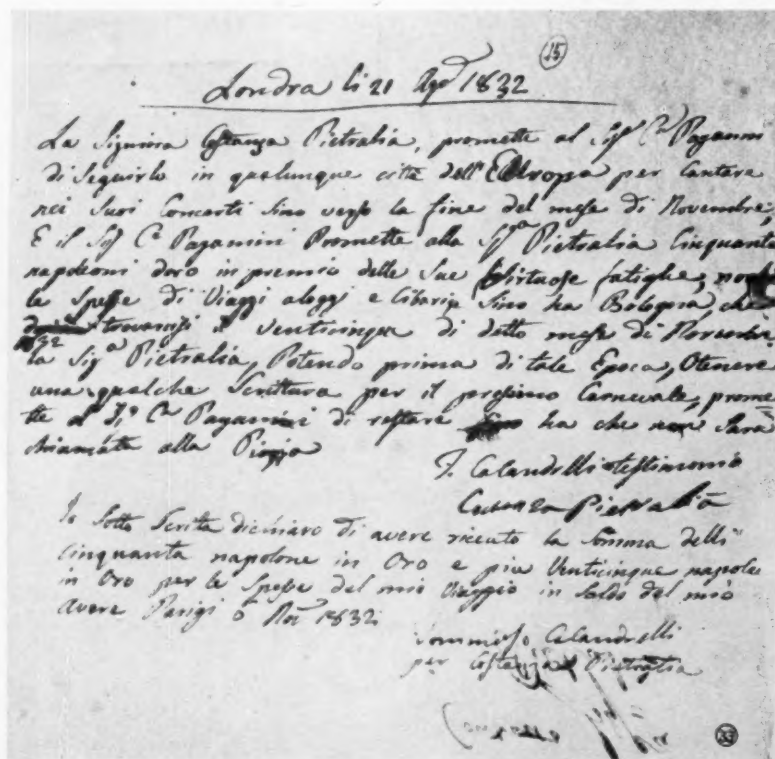 15
Londra li 21 Ago 1832
La Signiora Costanza Pietralia, promette al Sigr Cre Paganini
di Seguirlo in qualunque città dell'Europa per Cantare
nei Suoi Concerti Sino verso la fine del mese di Novembre,
E il Sigr Cre Paganini Promette alla Sigra Pietralia Cinquanta
napoleoni doro in premio delle Sue Virtuose fatighe,
le Spese di Viaggi aloggi e Cibarie Sino ha Bologna, che
trovarsi il Venticinque di detto mese di Novembre
la Siga Pietralia, Potendo prima di tale Epoca, Otenere
una qualche Scrittura per il prossimo Carnevale, prome
tte al Sigr Cre Paganini di restare ha che non Sarà
chiamata alla Piazza
T. Calandrelli testimonio
Costanza Pietralia
Io Sotto Scrita dichiaro di avere riceuto la Somma delli
Cinquanta napoleone in Oro e piu Venticinque napole
in Oro per le Spese del mio Viaggio in Saldo del mio
avere Parigi 1832
Tommaso Calandrelli
per Costanza Pietraglia